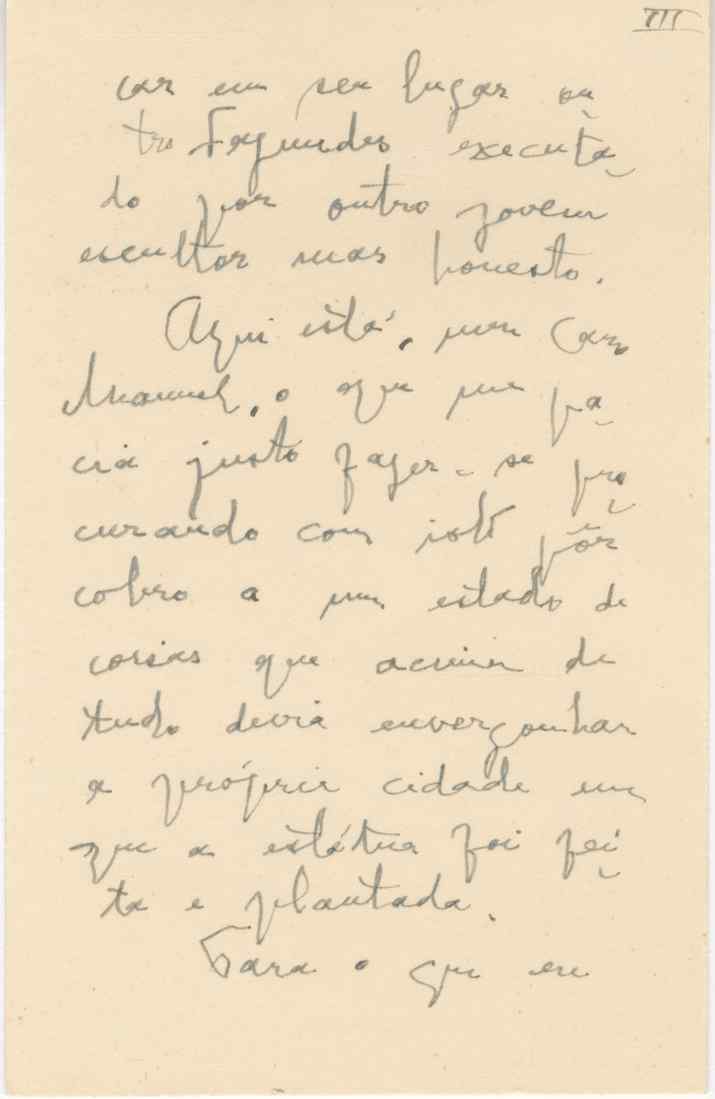 III
car em seu lugar ou-
tro Fagundes executa-
do por outro jovem
escultor mas honesto.
Aqui está, meu caro
Manuel, o que me pa-
cia justo fazer-se pro-
curando com isto pôr
cobro a um estado de
coisas que acima de
tudo devia envergonhar
a própria cidade em
que a estátua foi fei-
ta e plantada.
Para o que eu